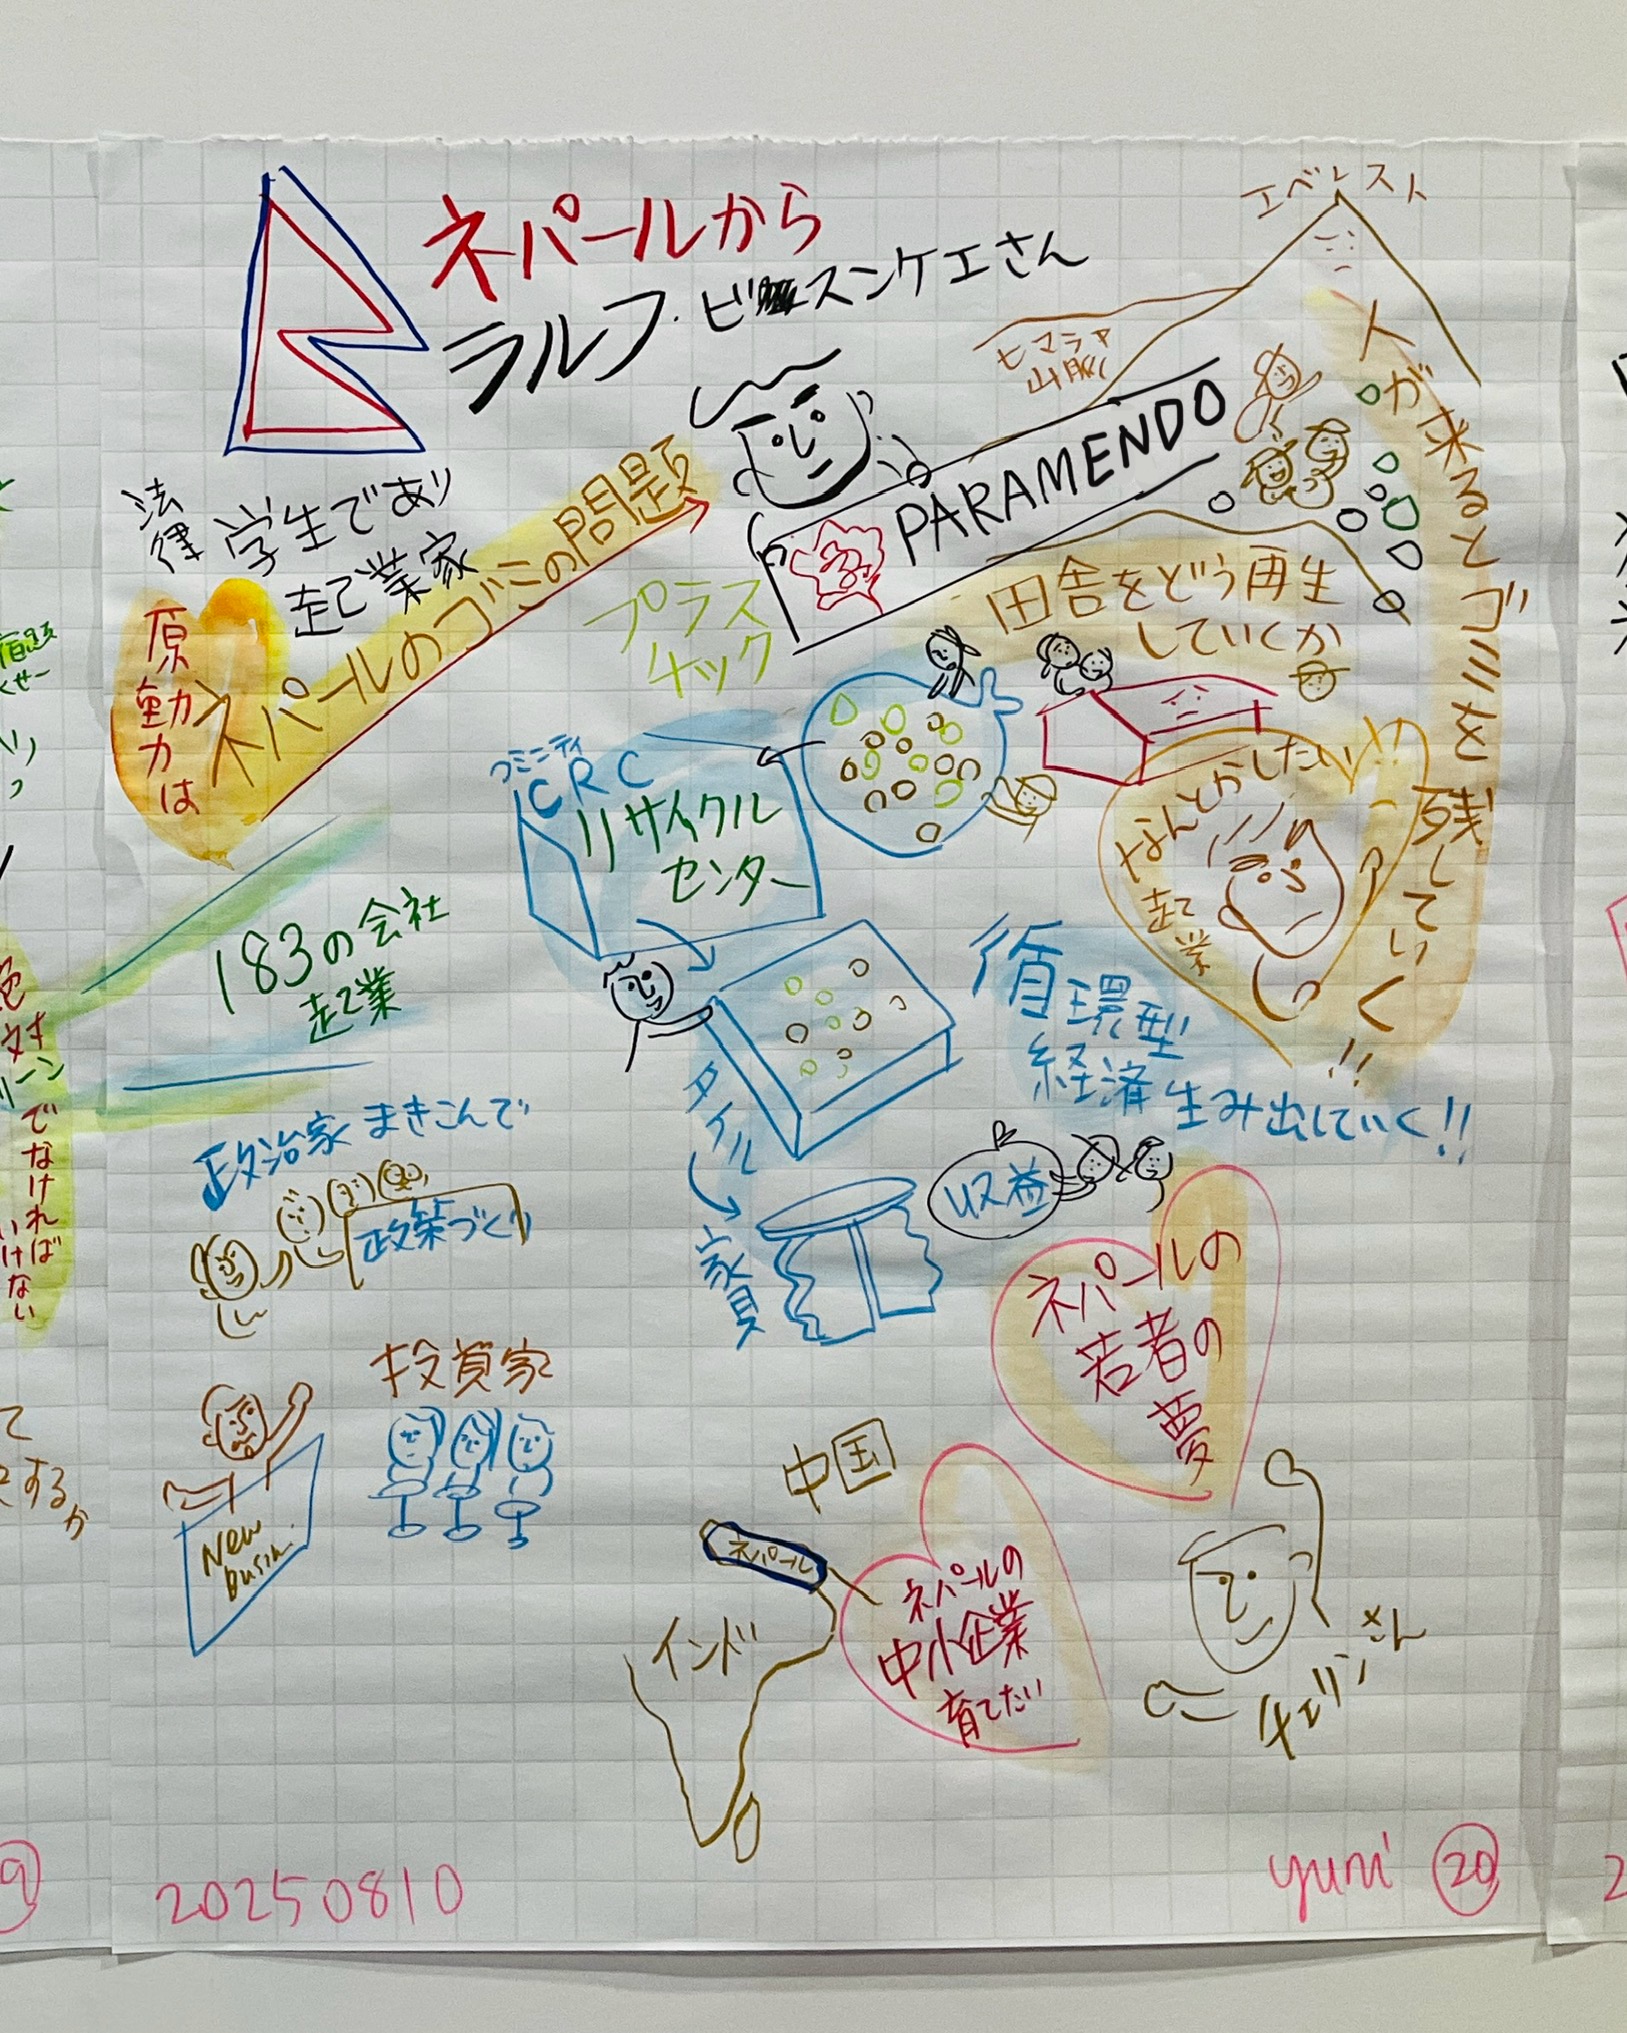 ネパールから
ラルフ・ビスンケエさん
エベレスト
ヒマラヤ
山脈
PARAMENDO
法律
学生であり
起業家
原動力は
ネパールのゴミの問題
プラス
チック
人が来るとゴミを残していく!!
田舎をどう再生
していくか
なんとかしたい
起業
コミニティ
CRC
リサイクル
センター
タイル
家具
循環型
経済生み出していく!!
収益
183の会社
起業
政治家まきこんで
政策づくり
投資家
New
busin.
ネパールの
若者の
夢
中国
ネパール
インド
ネパールの
中小企業
育てたい
チェリンさん
20250810
yuni
20
絶対
でなければ
いけない
するか